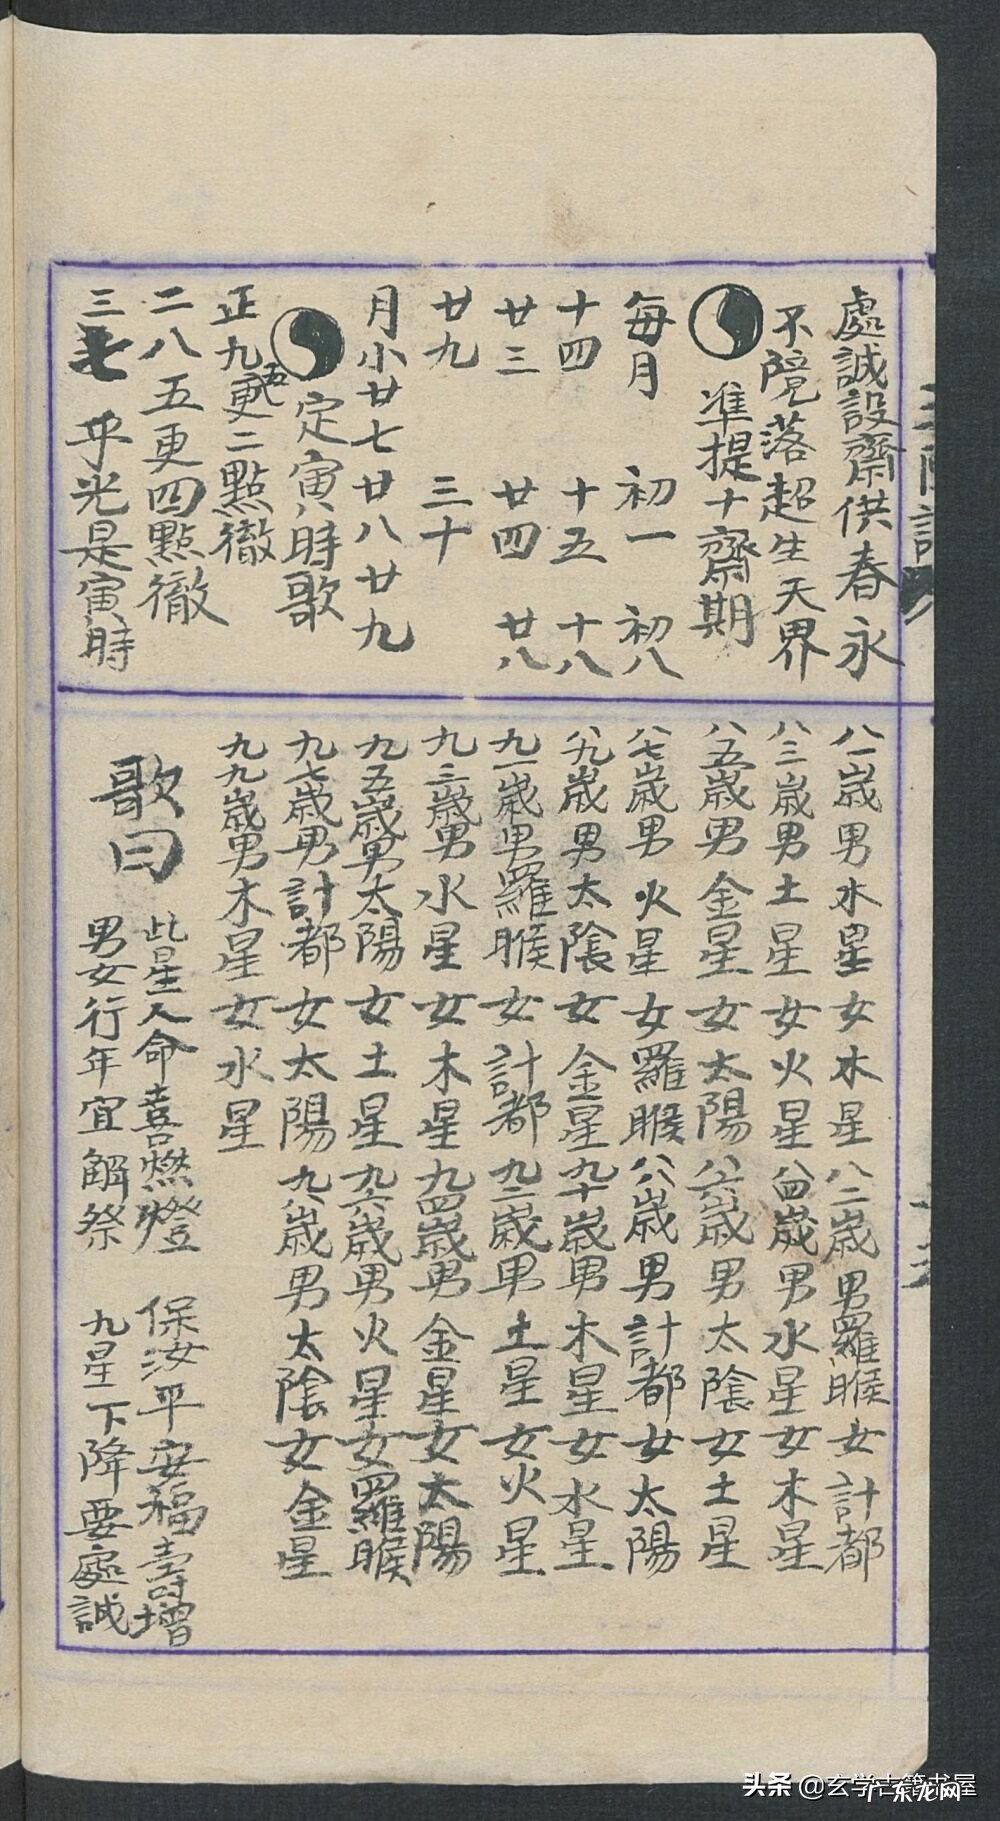 處誠設齋供春永
不墮落超生天界
准提十齋期
每月 初一 初八
十四 十五 十八
廿三 廿四 廿八
廿九 三十
月小廿七廿八廿九
定寅時歌
正九五更二點徹
二八五更四點徹
三七平光是寅時
八一歲男水星女木星八二歲男羅睺女計都
八三歲男土星女火星八四歲男水星女木星
八五歲男金星女太陽八六歲男太陰女土星
八七歲男火星女羅睺八八歲男計都女太陽
八九歲男太陰女金星九十歲男木星女水星
九一歲男羅睺女計都九二歲男土星女火星
九三歲男水星女木星九四歲男金星女太陽
九五歲男太陽女土星九六歲男火星女羅睺
九七歲男計都女太陽九八歲男太陰女金星
九九歲男木星女水星
歌曰
此星人命喜燃燈 保汝平安福壽增
男女行年宜解祭 九星下降要處誠
头条 @玄学古籍书屋
广东龙网